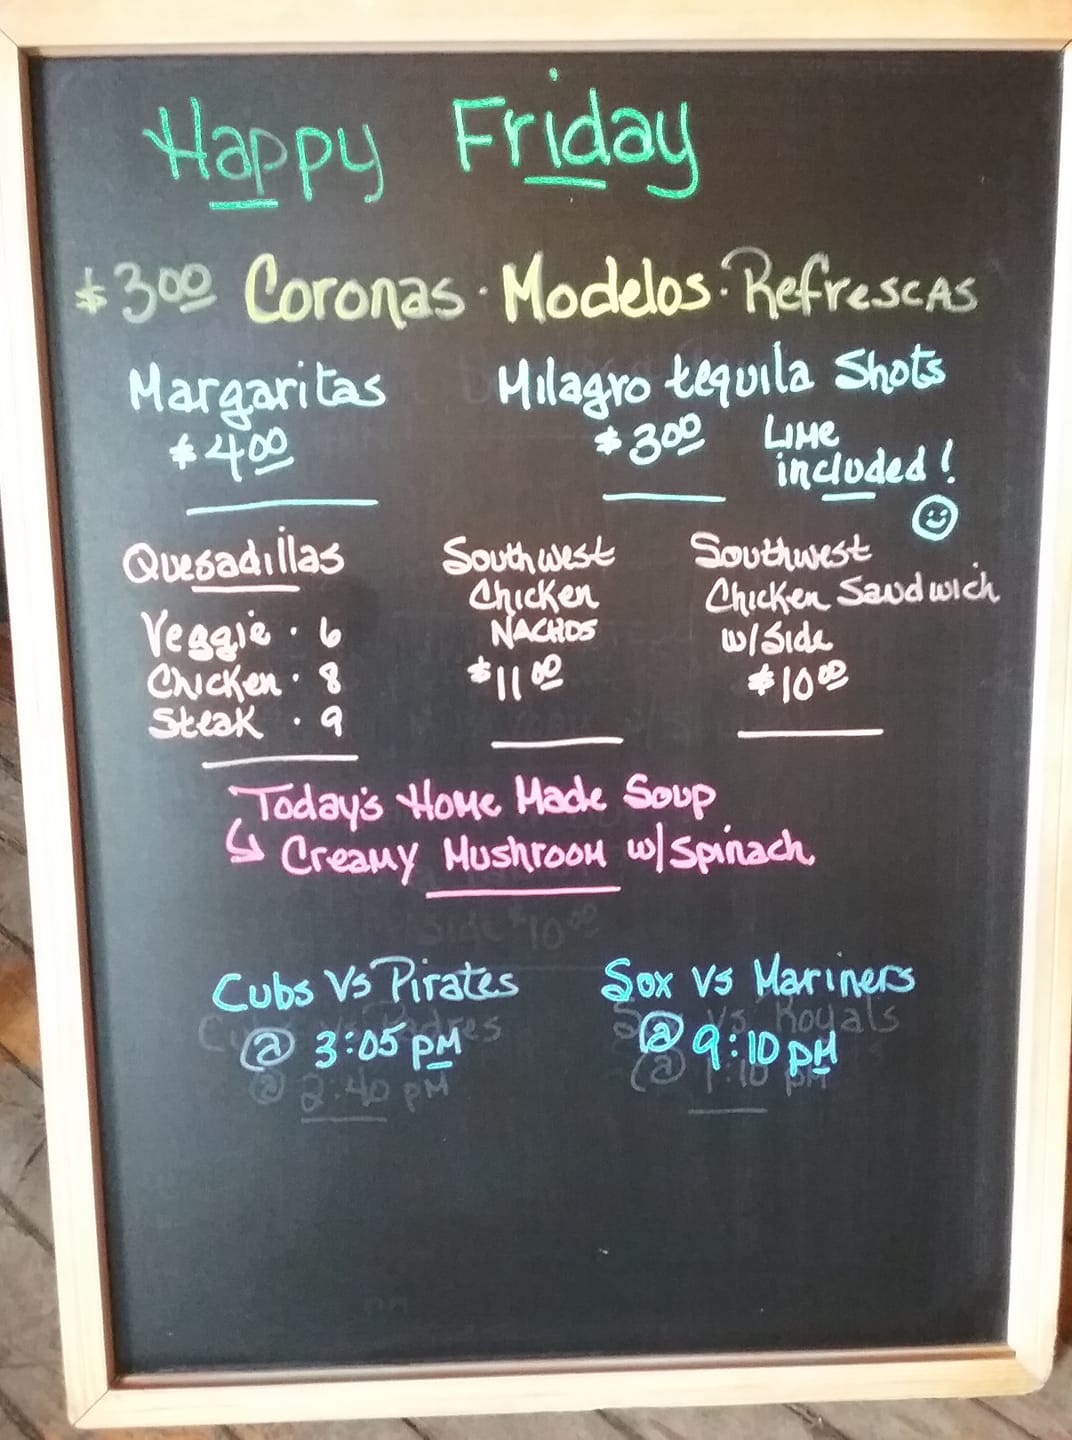 Happy Friday
$3.00 Coronas · Modelos · Refrescas
Margaritas
$4.00
Milagro tequila Shots
$3.00 Lime
included!
Quesadillas
Veggie · 6
Chicken · 8
Steak · 9
Southwest
Chicken
Nachos
$11.00
Southwest
Chicken Sandwich
w/Side
$10.00
Today's Home Made Soup
Creamy Mushroom w/Spinach
Side $10.00
Cubs Vs Pirates
@ 3:05 pM
Sox Vs Mariners
@ 9:10 pM
@ 2:40 pM
Vs. Royals
@ 1:10 pM